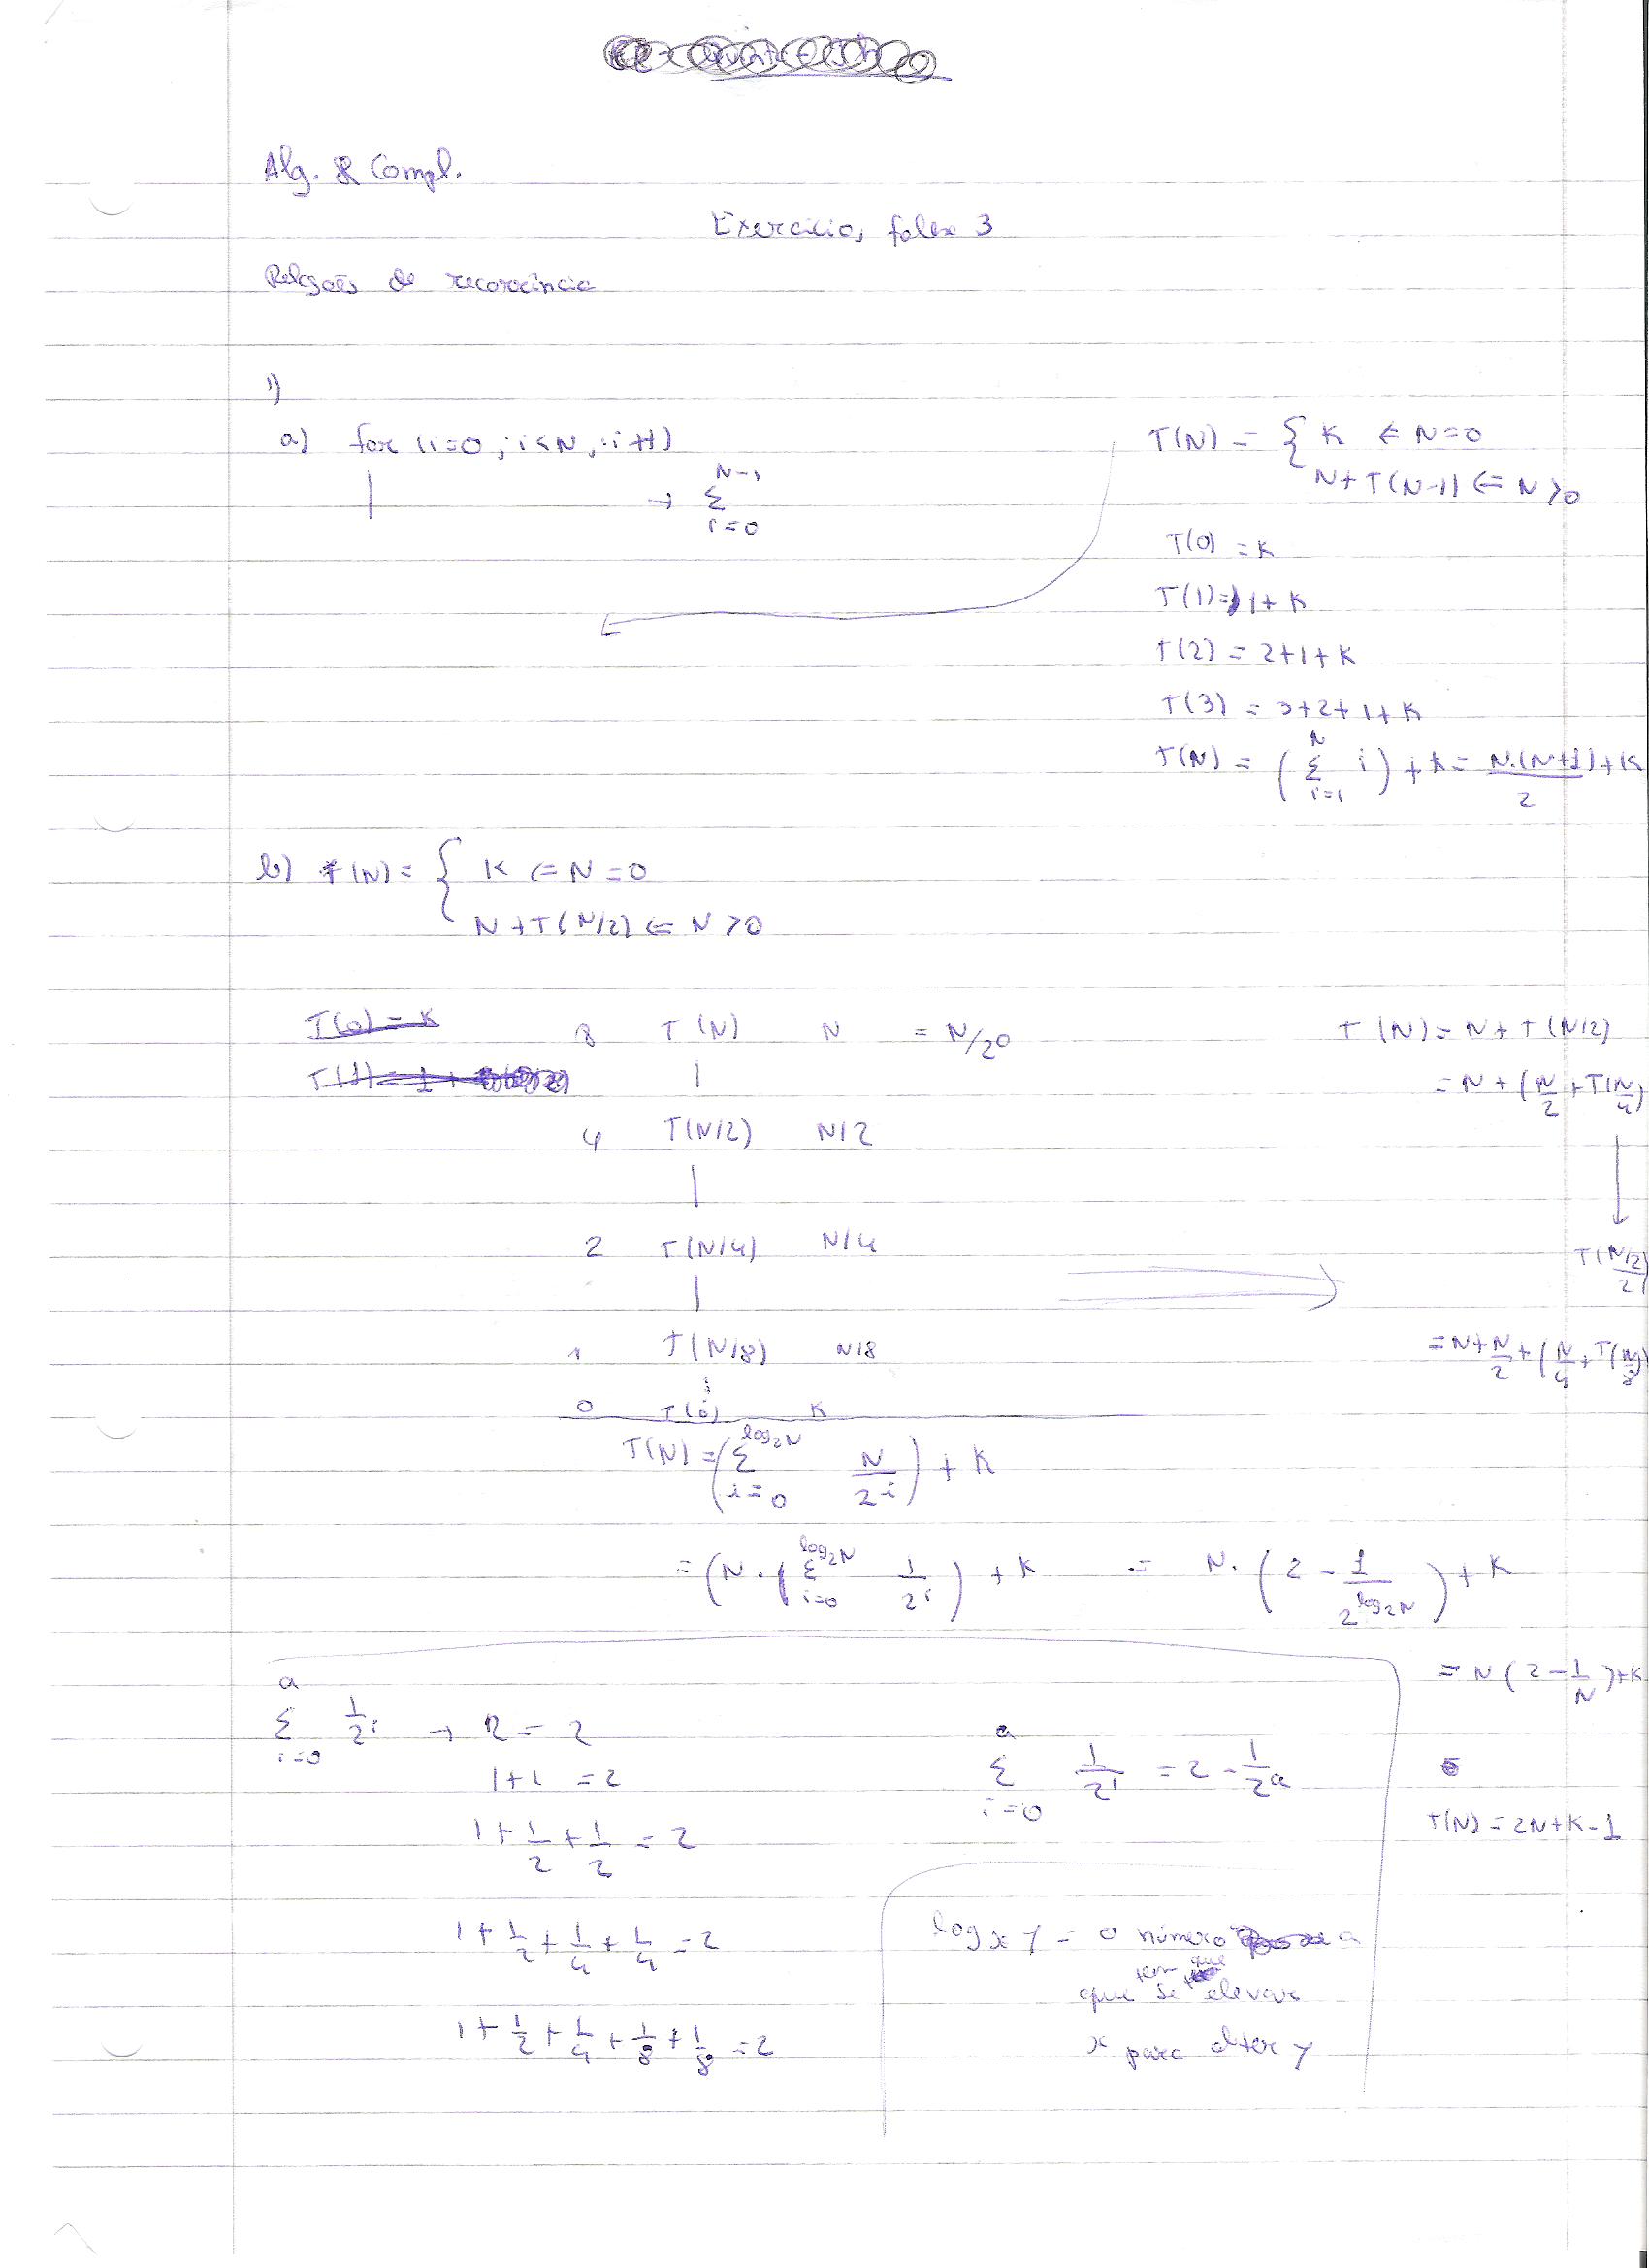 Alg. & Compl.
Exercícios folha 3
Relações de recorrência
1)
a) for (i=0 ; i<N ; i++)
→ Σ_{i=0}^{N-1}
T(N) = { K ⇐ N=0
N+T(N-1) ⇐ N>0
T(0) = K
T(1) = 1+K
T(2) = 2+1+K
T(3) = 3+2+1+K
T(N) = (Σ_{i=1}^{N} i) + K = N.(N+1)/2 + K
b) T(N) = { K ⇐ N=0
N+T(N/2) ⇐ N>0
T(0) = K
8 T(N) N = N/2^0
4 T(N/2) N/2
2 T(N/4) N/4
1 T(N/8) N/8
0 T(0) K
T(N) = (Σ_{i=0}^{log₂N} N/2^i) + K
T(N) = N + T(N/2)
= N + (N/2 + T(N/4)
↓
T((N/2)/2)
= N + N/2 + (N/4 + T(N/8)
= (N . (Σ_{i=0}^{log₂N} 1/2^i) + K = N. (2 - 1/2^{log₂N}) + K
= N (2 - 1/N) + K
T(N) = 2N+K-1
Σ_{i=0}^{a} 1/2^i → 2 = 2
1+1 = 2
1+1/2+1/2 = 2
1+1/2+1/4+1/4 = 2
1+1/2+1/4+1/8+1/8 = 2
Σ_{i=0}^{a} 1/2^i = 2 - 1/2^a
log_x y = o número a
que se tem que elevar
x para obter y